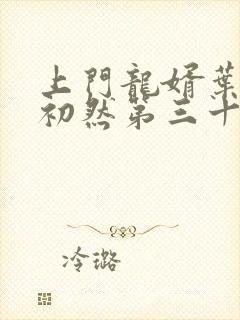 上門龍婿葉
初然第三十
冷璐